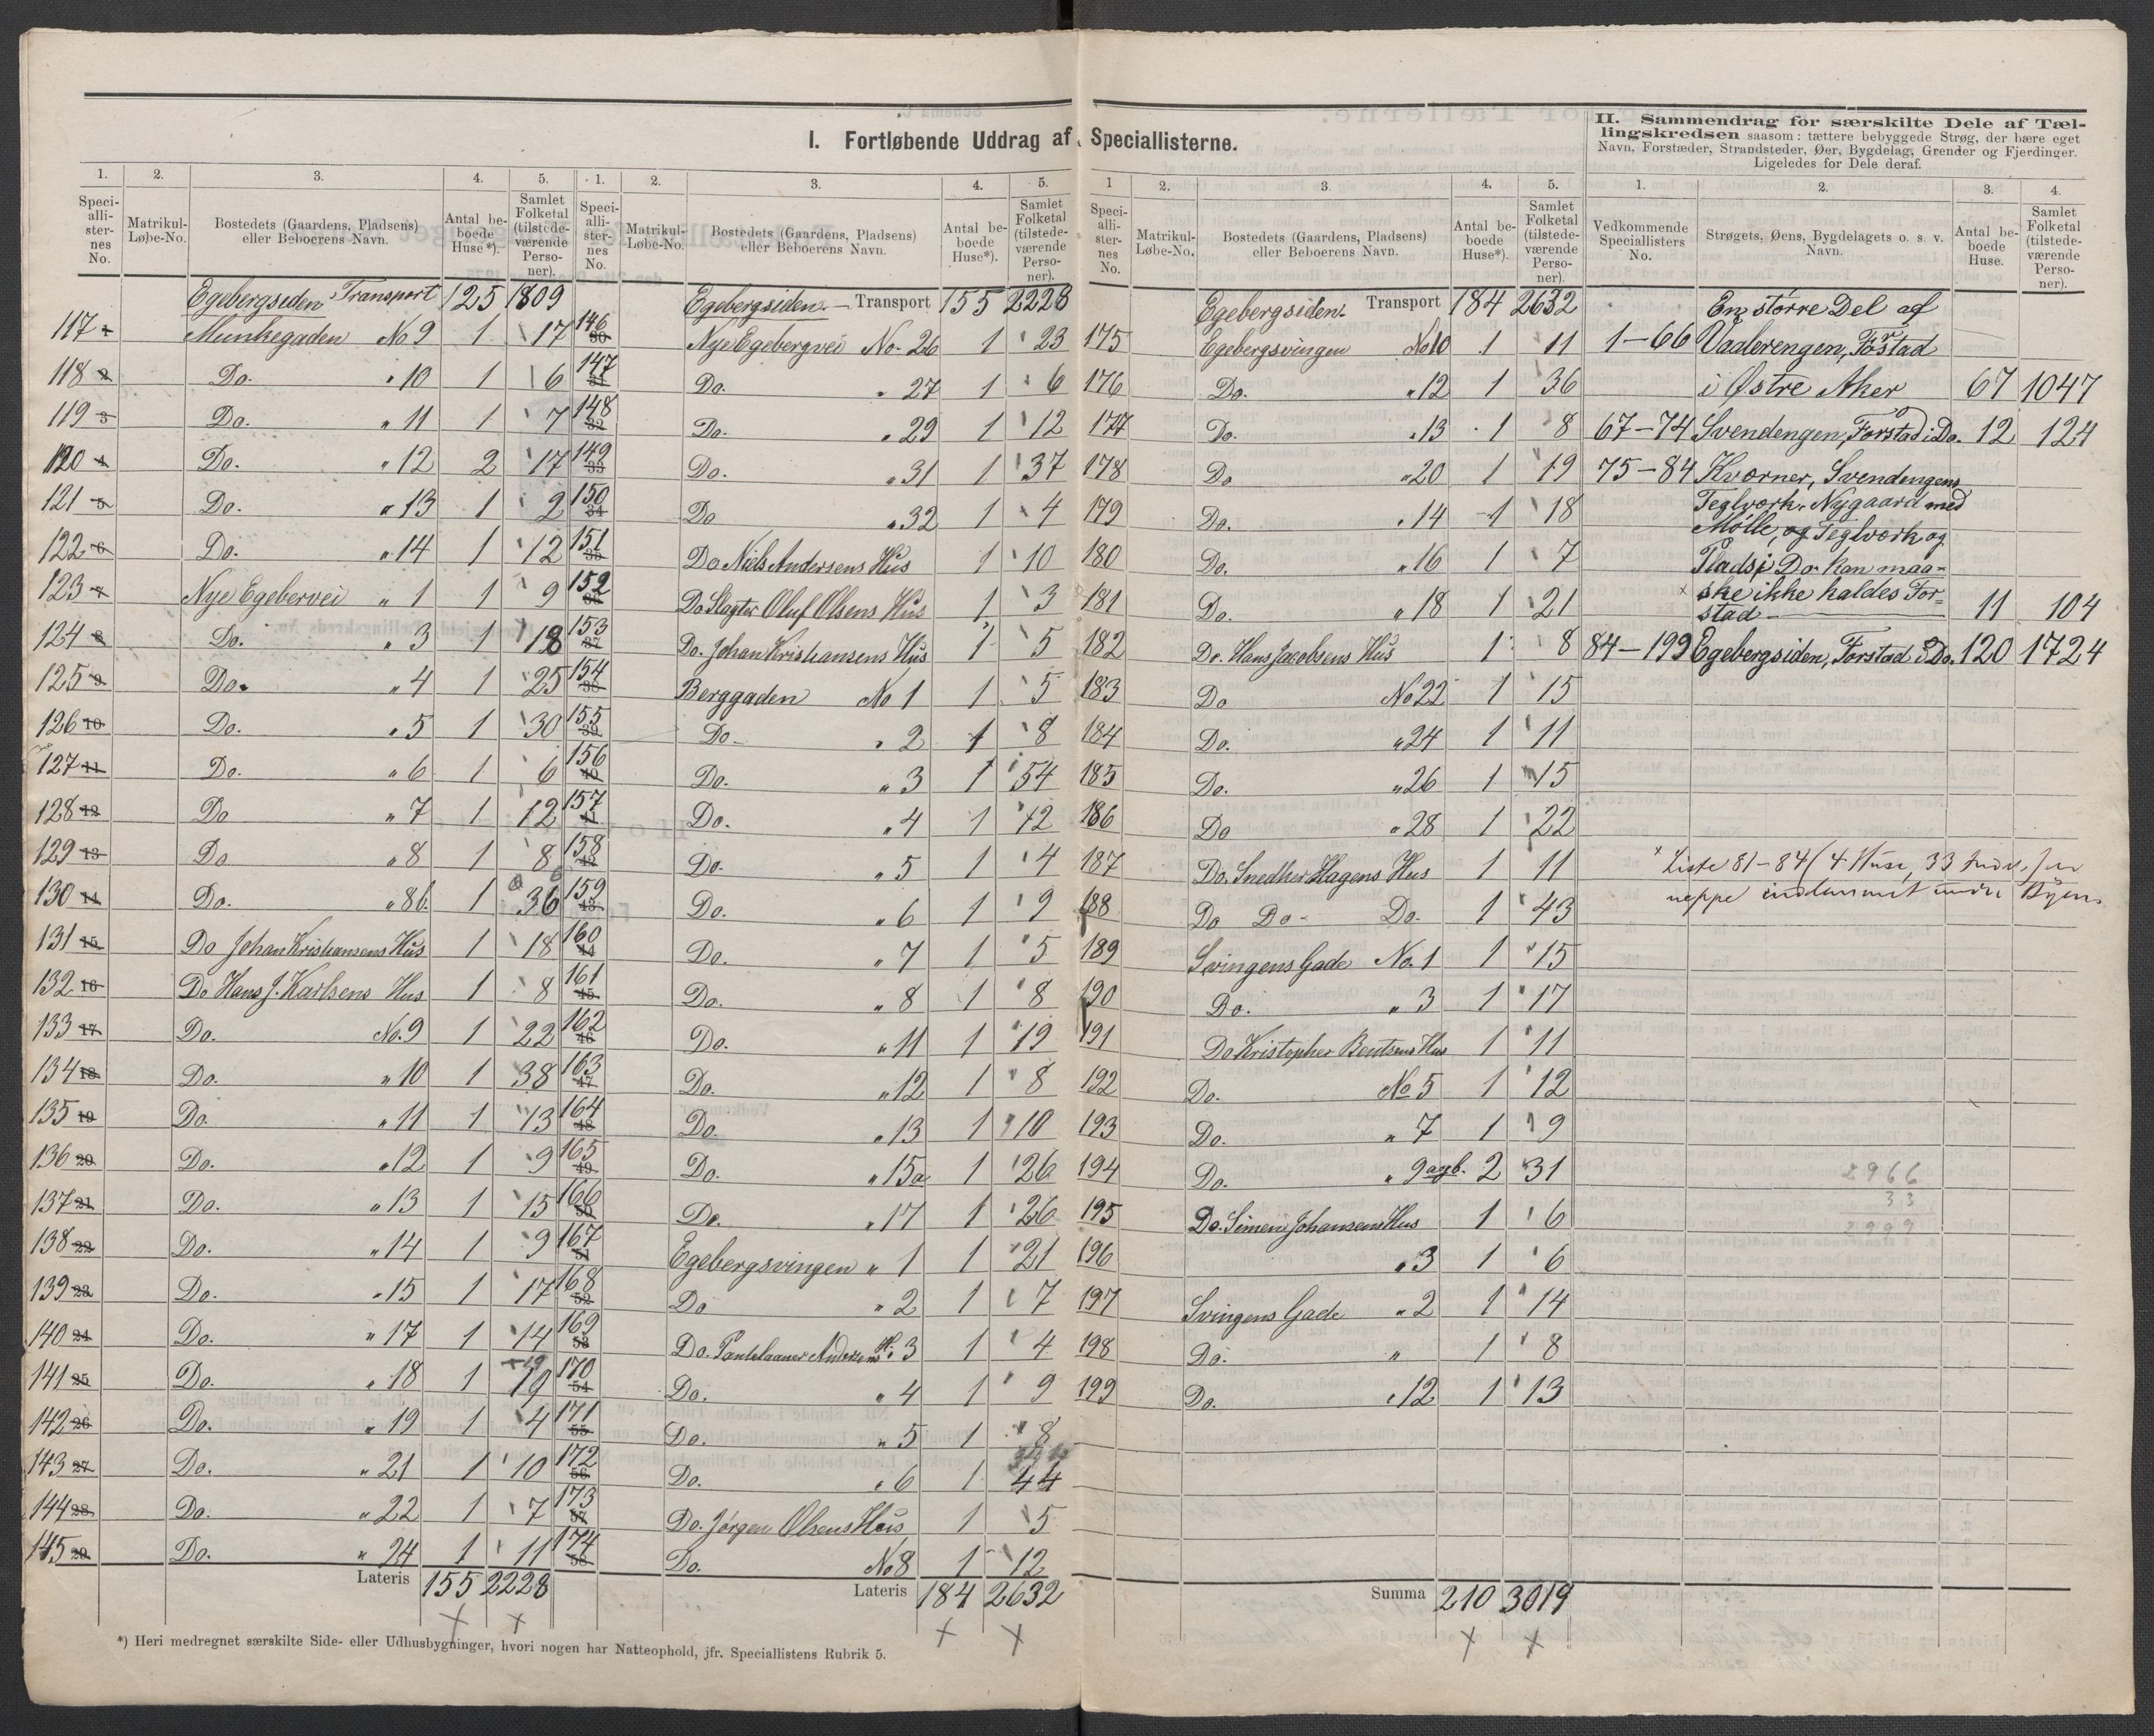 I. Fortløbende Uddrag af Speciallisterne.
1. 2. 3. 4. 5.
Specialli-sternes No. Matrikul-Løbe-No. Bostedets (Gaardens, Pladsens) eller Beboerens Navn. Antal beboede Huse*). Samlet Folketal (tilstedeværende Personer).
Egebergsiden Transport 125 1809
117 1 Munkegaden No 9 1 17
118 2 Do. " 10 1 6
119 3 Do. " 11 1 7
120 4 Do. " 12 2 17
121 5 Do. " 13 1 2
122 6 Do. " 14 1 12
123 7 Nye Egebervei " 1 1 9
124 8 Do. " 3 1 18
125 9 Do. " 4 1 25
126 10 Do. " 5 1 30
127 11 Do. " 6 1 6
128 12 Do " 7 1 12
129 13 Do " 8 1 8
130 14 Do. " 8b. 1 36
131 15 Do Johan Kristiansens Hus 1 18
132 16 Do Hans J. Karlsens Hus 1 8
133 17 Do. No. 9 1 22
134 18 Do. " 10 1 38
135 19 Do. " 11 1 13
136 20 Do. " 12 1 9
137 21 Do. " 13 1 15
138 22 Do. " 14 1 9
139 23 Do. " 15 1 17
140 24 Do. " 17 1 14
141 25 Do. " 18 1 19
142 26 Do. " 19 1 4
143 27 Do. " 21 1 10
144 28 Do. " 22 1 7
145 29 Do. " 24 1 11
Lateris 155 2228
*) Heri medregnet særskilte Side- eller Udhusbygninger, hvori nogen har Natteophold, jfr. Speciallistens Rubrik 5.
1. 2. 3. 4. 5.
Specialli-sternes No. Matrikul-Løbe-No. Bostedets (Gaardens, Pladsens) eller Beboerens Navn. Antal beboede Huse*). Samlet Folketal (tilstedeværende Personer).
Egebergsiden. — Transport 155 2228
146 30 Nye Egebergvei No. 26 1 23
147 31 Do. " 27 1 6
148 32 Do. " 29 1 12
149 33 Do. " 31 1 37
150 34 Do " 32 1 4
151 35 Do Niels Andersens Hus 1 10
152 36 Do Slagter Oluf Olsens Hus 1 3
153 37 Do. Johan Kristiansens Hus 1 5
154 38 Berggaden No 1 1 5
155 39 Do - " 2 1 8
156 40 Do. " 3 1 54
157 41 Do. " 4 1 12
158 42 Do. " 5 1 4
159 43 Do. " 6 1 9
160 44 Do. " 7 1 5
161 45 Do. " 8 1 8
162 46 Do. " 11 1 19
163 47 Do. " 12 1 8
164 48 Do. " 13 1 10
165 49 Do. " 15a 1 26
166 50 Do. " 17 1 26
167 51 Egebergsvingen " 1 1 21
168 52 Do " 2 1 7
169 53 Do. Andersens H. 3 1 4
170 54 Do. " 4 1 9
171 55 Do. " 5 1 8
172 56 Do. " 6 1 44
173 57 Do. Jørgen Olsens Hus 1 5
174 58 Do. No 8 1 12
Lateris 184 2632
1 2. 3. 4. 5.
Specialli-sternes No. Matrikul-Løbe-No. Bostedets (Gaardens, Pladsens) eller Beboerens Navn. Antal beboede Huse*). Samlet Folketal (tilstedeværende Personer).
Egebergsiden. Transport 184 2632
175 Egebergsvingen No 10 1 11
176 Do. " 12 1 36
177 Do. " 13 1 8
178 Do " 20 1 19
179 Do. " 14 1 18
180 Do. " 16 1 7
181 Do. " 18 1 21
182 Do. Hans Jacobsens Hus 1 8
183 Do No 22 1 15
184 Do. " 24 1 11
185 Do. " 26 1 15
186 Do " 28 1 22
187 Do. Snedker Hagens Hus 1 11
188 Do Do - Do. 1 43
189 Svingens Gade No. 1 1 15
190 Do. " 3 1 17
191 Do Kristopher Bentsens Hus 1 11
192 Do. No 5 1 12
193 Do. " 7 1 9
194 Do. " 9 a og b. 2 31
195 Do. Simen Johansens Hus 1 6
196 " 3 1 6
197 Svingens Gade " 2 1 14
198 Do. " 1 8
199 Do. " 12 1 13
Summa 210 3019
II. Sammendrag for særskilte Dele af Tællingskredsen saasom: tættere bebyggede Strøg, der bære eget
Navn, Forstæder, Strandsteder, Øer, Bygdelag, Grender og Fjerdinger.
Ligeledes for Dele deraf.
1. 2. 3. 4.
Vedkommende Speciallisters No. Strøgets, Øens, Bygdelagets o. s. v. Navn. Antal beboede Huse. Samlet Folketal (tilstedeværende Personer).
En større Del af
1–66 Vaalerengen, Forstad
i Østre Aker 67 1047
67–74 Svendengen, Forstad i Do. 12 124
75–84 Kværner, Svendengens
Teglværk, Nygaard med
Mølle, og Teglværk og
Plads i Do. kan maa-
ske ikke kaldes For-
stad — 11 104
84–199 Egebergsiden, Forstad i Do. 120 1724
× Liste 81–84 (4 Huse, 33 Indv.) er
neppe indlemmet under Byen.
2966
33
2999